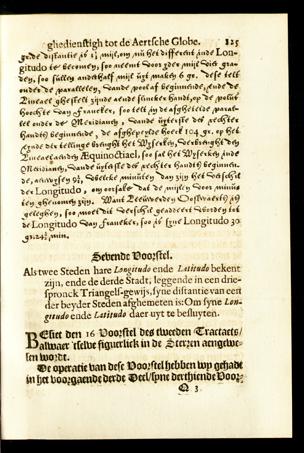 ghedienstigh tot de Aertsche Globe. 125
gr. de distantie is 1½ mijl, om nu het different inde Lon-
gitudo te becomen, soo neemt voor yder mijl vier gra-
den, soo sullen anderhalf mijl uyt maken 6 gr. dese telt
onder de parallelen, vande pool af beginnende, ende de
Lineael ghestelt zijnde aende slincker handt, op de poolr
hooghte van Franeker, soo telt in de afghetelde paralle-
len onder de Meridianen, vande uyterste der rechter
handt beginnende, de afgheperste boech 104 gr. op het
eynde der tellinge brenght het Wyserken, ver brenght den
Lineael aenden Æquinoctiael, soo sal het Wyserken inde
Meridianen, vande uyterste der rechter handt beginnen-
de, aenwysen 9½, welcke minuten day zijn het verschil
der Longitudo, om oorsake dat de mijlen voor minu-
ten ghenomen zijn, Want Leeuwerden Oostwaerts is
geleghen, soo moet dit verschil geaddeert worden tot
de Longitudo van Franeker, soo is syne Longitudo 30
gr. 24½ min.
Sevende Voorstel.
Als twee Steden hare Longitudo ende Latitudo bekent
zijn, ende de derde Stadt, leggende in een drie-
spronck Triangels-gewijs, syne distantie van eert
der beyder Steden afghemeten is: Om syne Lon-
gitudo ende Latitudo daer uyt te besluyten.
BEsiet den 16 Voorstel des tweeden Tractaets/
Alwaer 'tselve figuerlick in de Sterren aengewe-
sen wordt.
De operatie van dese Voorstel hebben wy gehadt
in het voorgaende derde Deel/ syne derthiende Voor-
Q 3